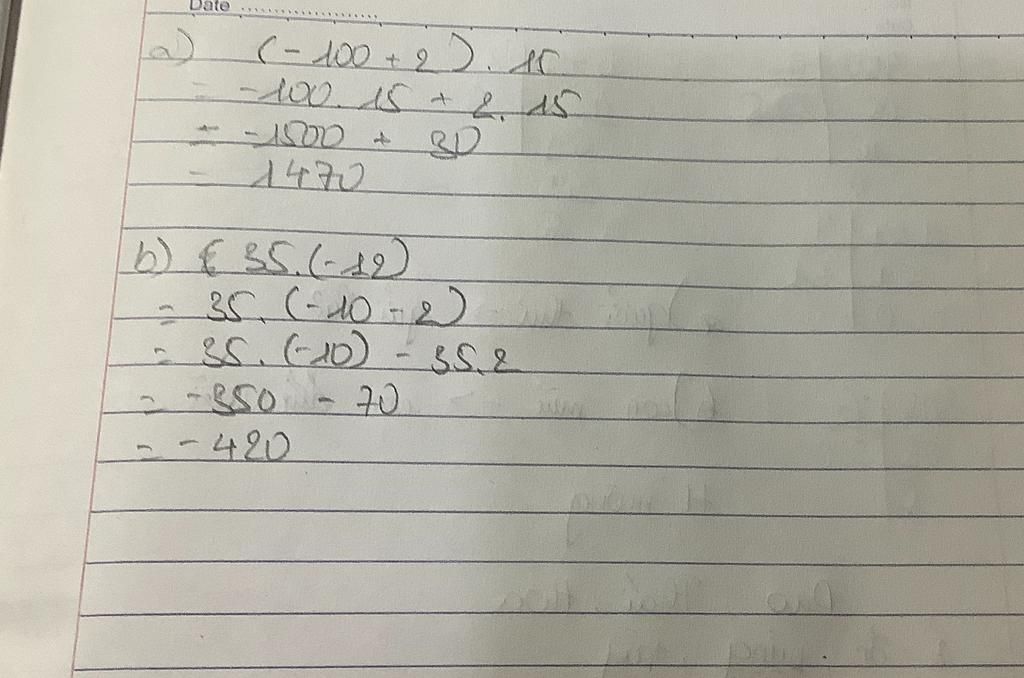 Date
a) (-100 + 2). 15
= -100. 15 + 2. 15
= -1500 + 30
= 1470
b) 35.(-12)
= 35. (-10 - 2)
= 35. (-10) - 35.2
= -350 - 70
= -420